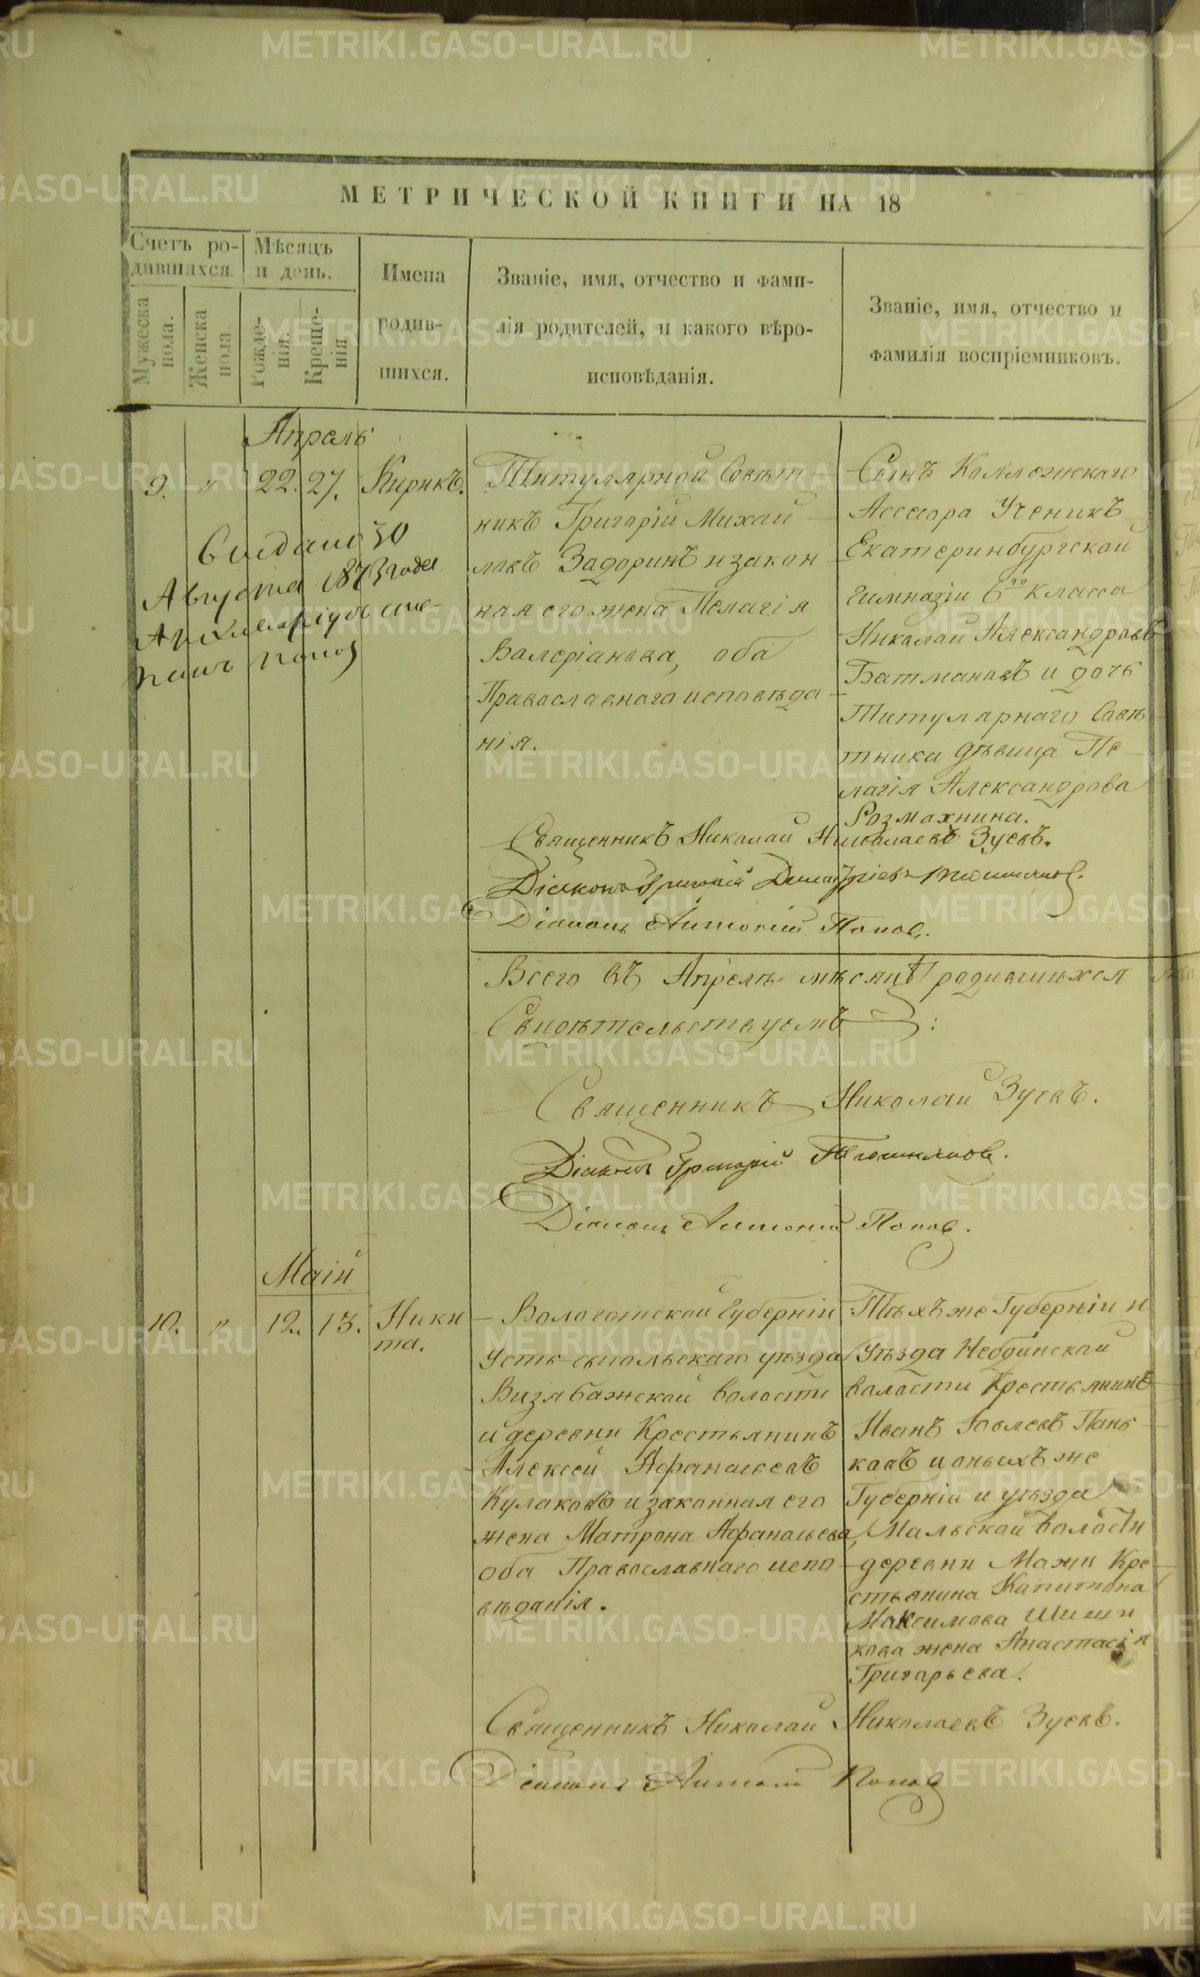 МЕТРИЧЕСКОЙ КНИГИ НА 18
Счетъ ро-
дившихся.
Мѣсяцъ
и день.
Мужеска
пола.
Женска
пола
Рожде-
нія.
Креще-
нія
Имена
родив-
шихся.
Званіе, имя, отчество и фами-
лія родителей, и какого вѣро-
исповѣданія.
Званіе, имя, отчество и
фамилія воспріемниковъ.
Апрель
9. " 22. 27. Кирикъ.
Выдано 30
Августа 1873 года
Титулярной Совѣт-
никъ Григорій Михай-
ловъ Задоринъ и закон-
ная его жена Пелагія
Валеріанова, оба
Православнаго исповѣда-
нія.
Сынъ Коллежскаго
Ассесора Ученикъ
Екатеринбургской
Гимназіи 6го класса
Николай Александровъ
Батмановъ и дочь
Титулярнаго Совѣ-
тника дѣвица Пе-
лагія Александрова
Розмахнина.
Священникъ Николай Николаевъ Зуевъ.
Діаконъ Григорій
Діаконъ Антоній Попов.
Всего въ Апрелѣ мѣсяцѣ родившихся
Свидѣтельствуемъ:
Священникъ Николай Зуевъ.
Діаконъ Григорій
Діаконъ Антоній Попов.
Маій
10. " 12. 13. Ники
та.
Вологотской Губерніи
Усть-сысольскаго уѣзда
Визябажской волости
и деревни Крестьянинъ
Алексей Афанасьевъ
Кулаковъ и законная его
жена Матрона Афанасьева,
оба Православнаго испо-
вѣданія.
Тѣхъ же Губерніи и
Уѣзда Небдинской
волости Крестьянинъ
Иванъ Іовлевъ Пань-
ковъ и оныхъ же
Губерніи и уѣзда
Мальской волости
деревни Мажи Кре-
стьянина Капитона
Максимова Шиши
кова жена Анастасія
Григорьева.
Священникъ Николай Николаевъ Зуевъ.
Діаконъ Антоній Попов
METRIKI.GASO-URAL.RU